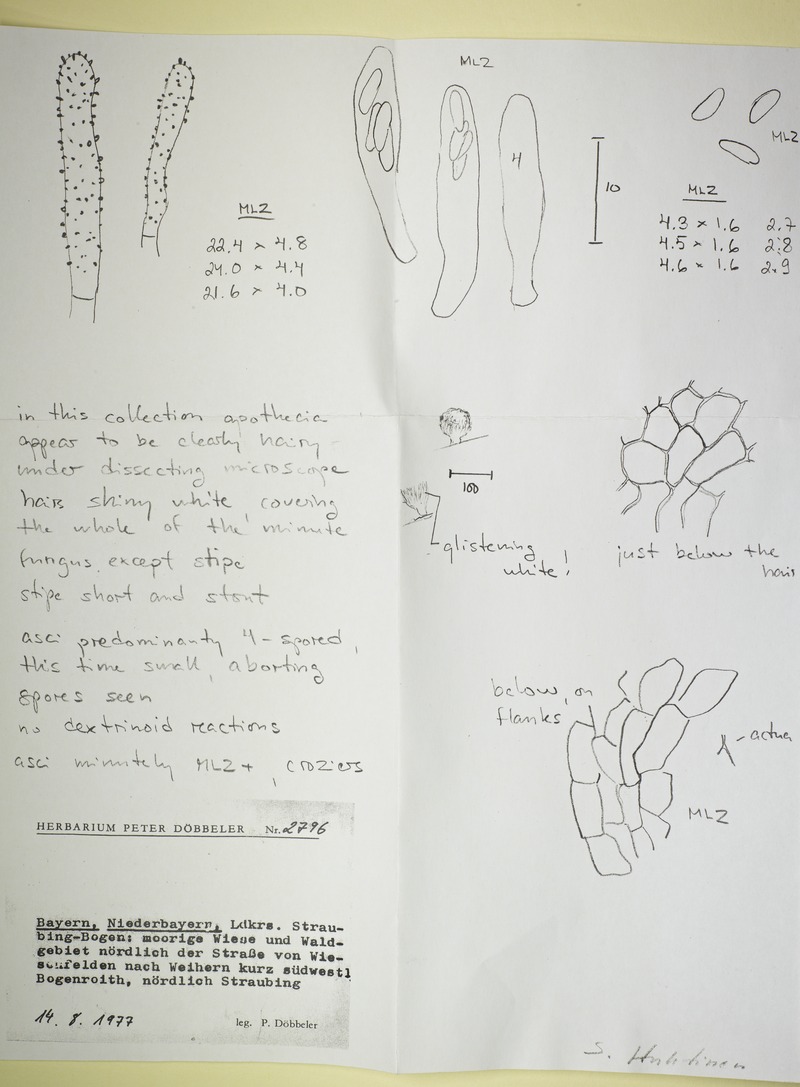 MLZ
MLZ
22.4 × 4.8
24.0 × 4.4
21.6 × 4.0
4
10
MLZ
MLZ
4.3 × 1.6 2.7
4.5 × 1.6 2.8
4.6 × 1.6 2.9
in this collection apothecia
appear to be clearly hairy
under dissecting microscope
hairs shiny white, covering
the whole of the minute
fungus, except stipe
stipe short and stout
asci predominantly 4-spored,
this time small, aborting
spores seen
no dextrinoid reactions
asci minutely MLZ+
100
glistening,
white,
just below the
hairs
below, on
flanks
MLZ
HERBARIUM PETER DÖBBELER Nr. 2796
Bayern, Niederbayern, Ldkrs. Strau-
bing-Bogen; moorige Wiese und Wald-
gebiet nördlich der Straße von Wie-
senfelden nach Weihern kurz südwestl
Bogenroith, nördlich Straubing
14. 8. 1977 leg. P. Döbbeler
S. Huhtinen